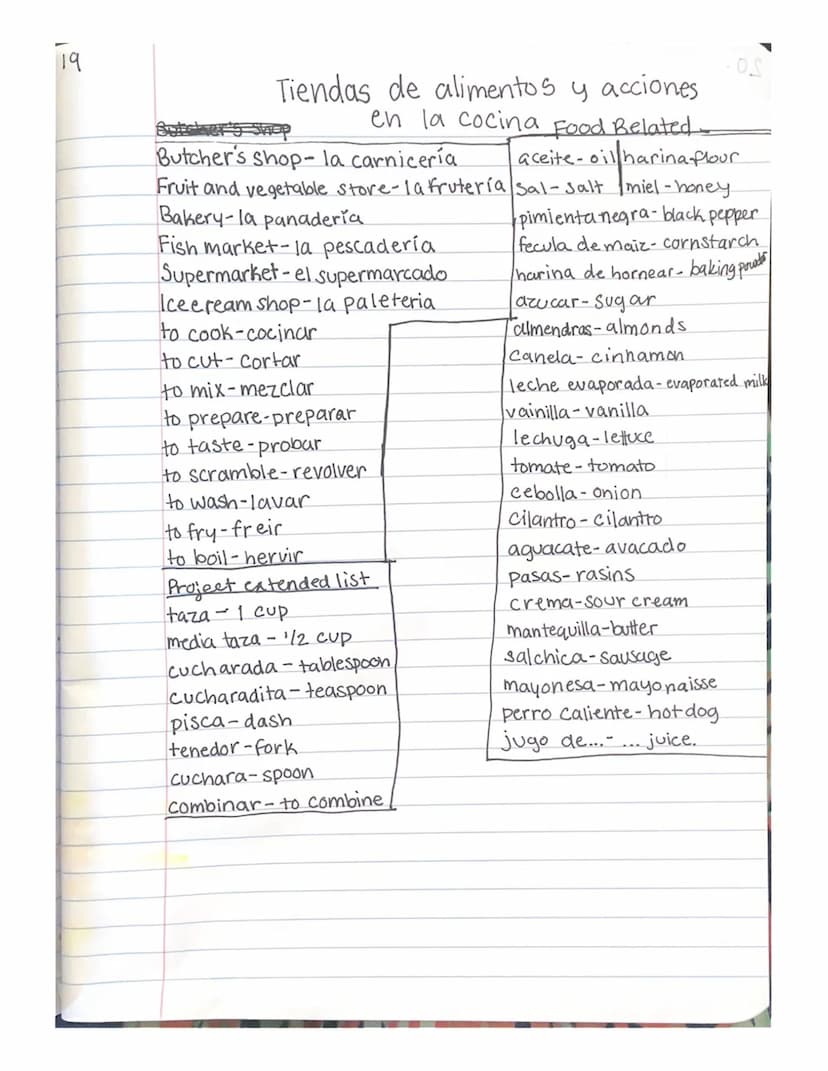 19
Tiendas de alimentos y acciones
en la cocina
Butcher's shop
Butcher's shop- la carnicería
Fruit and vegetable store- la frutería
Bakery- la panadería
Fish market- la pescadería
Supermarket- el supermarcado
Icecream shop- la paleteria
to cook-cocinar
to cut- cortar
to mix-mezclar
to prepare-preparar
to taste-probar
to scramble-revolver
to wash-lavar
to fry-freir
to boil-hervir
Project extended list
taza - 1 cup
media taza - 1/2 cup
cucharada - tablespoon
cucharadita - teaspoon
pisca - dash
tenedor - fork
cuchara - spoon
combinar - to combine
Food Related
aceite - oil harina-flour
sal - salt miel - honey
pimienta negra - black pepper
fecula de maiz - cornstarch
harina de hornear - baking powder
azucar - sugar
almendras - almonds
canela - cinnamon
leche evaporada - evaporated milk
vainilla - vanilla
lechuga - lettuce
tomate - tomato
cebolla - onion
cilantro - cilantro
aguacate - avacado
pasas - rasins
crema - sour cream
mantequilla - butter
salchica - sausage
mayonesa - mayonaisse
perro caliente - hotdog
jugo de... - ... juice.
20